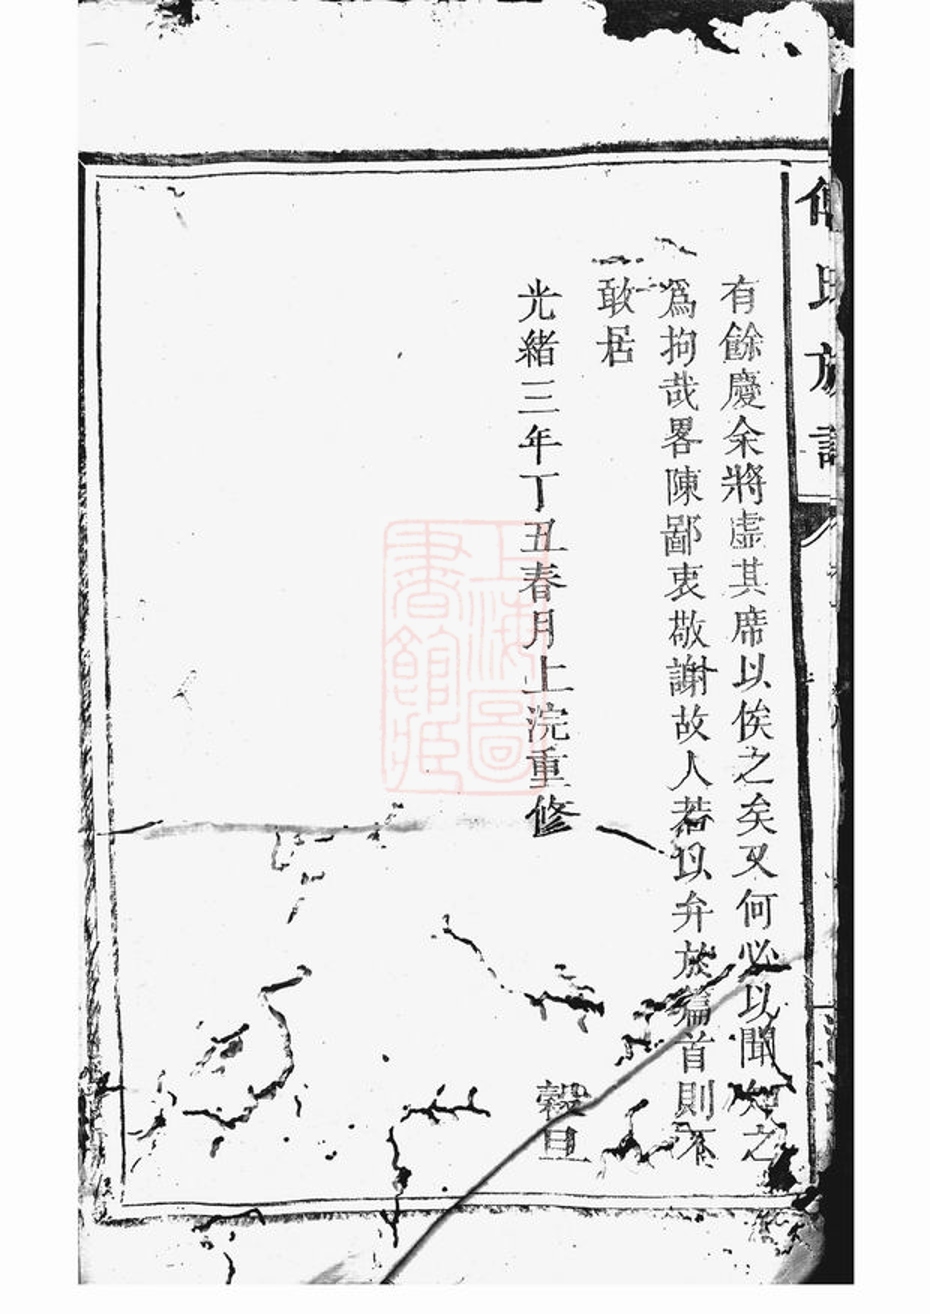 氏族譜
有餘慶余將虛其席以俟之矣又何必以聞知之
爲拘哉畧陳鄙衷敬謝故人若以弁於篇首則不
敢居
光緒三年丁丑春月上浣重修 穀旦
上海圖書館藏